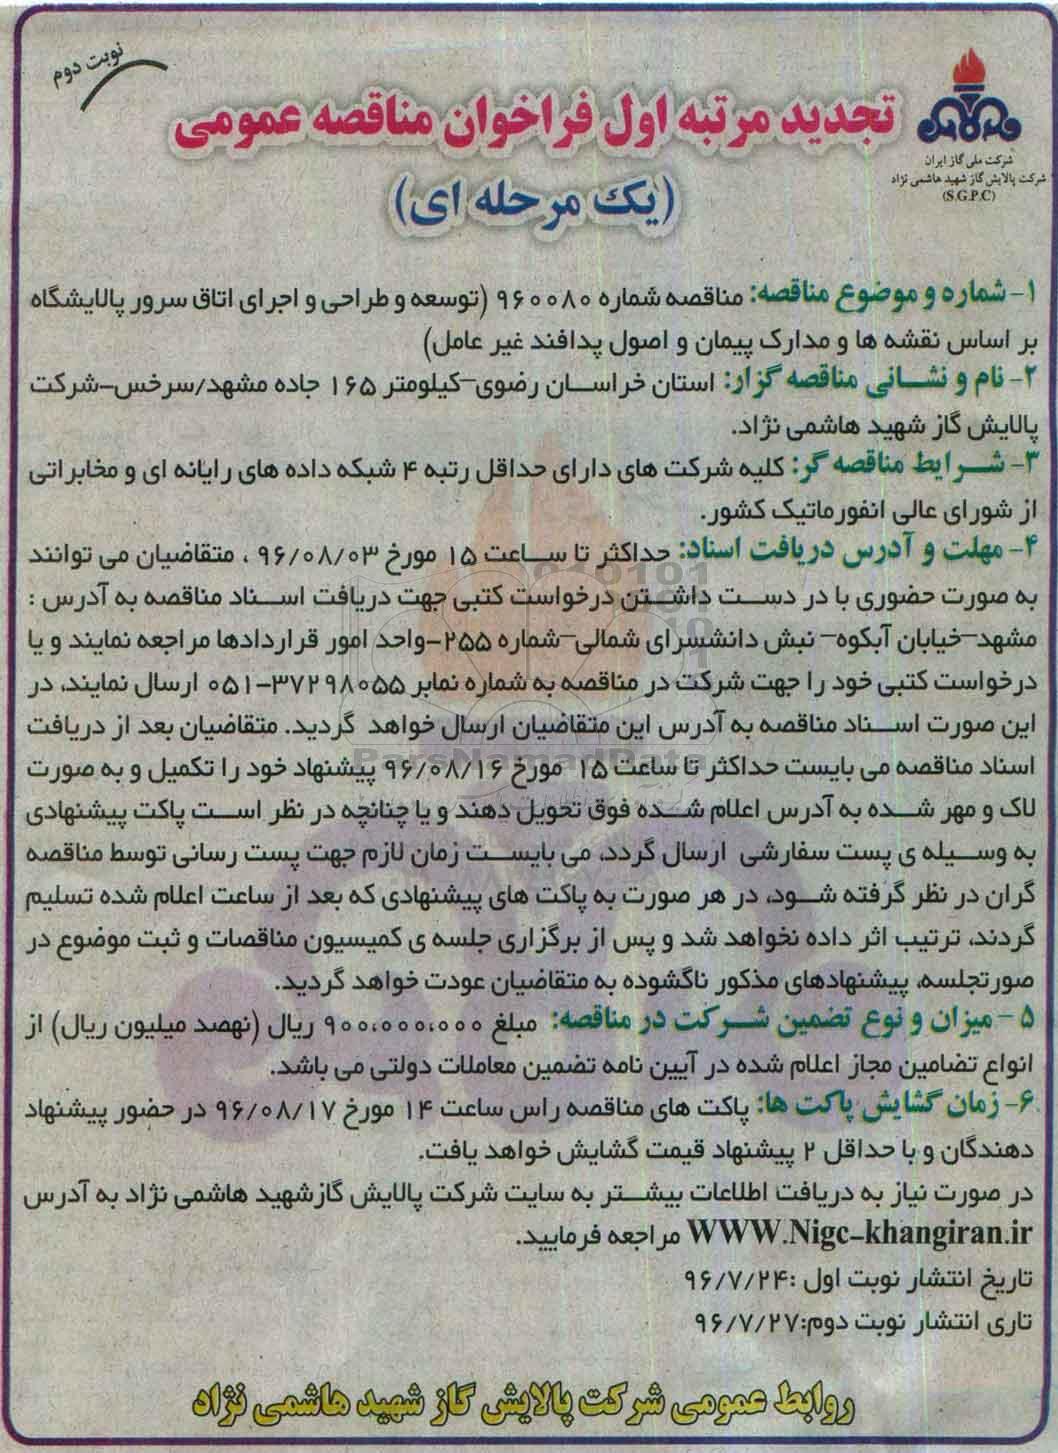 نوبت دوم
تجدید مرتبه اول فراخوان مناقصه عمومی
شرکت ملی گاز ایران
شرکت پالایش گاز شهید هاشمی نژاد
(S.G.P.C)
(یک مرحله ای)
۱- شماره و موضوع مناقصه: مناقصه شماره ۹۶۰۰۸۰ (توسعه و طراحی و اجرای اتاق سرور پالایشگاه
بر اساس نقشه ها و مدارک پیمان و اصول پدافند غیر عامل)
۲- نام و نشانی مناقصه گزار: استان خراسان رضوی–کیلومتر ۱۶۵ جاده مشهد/سرخس–شرکت
پالایش گاز شهید هاشمی نژاد.
۳- شرایط مناقصه گر: کلیه شرکت های دارای حداقل رتبه ۴ شبکه داده های رایانه ای و مخابراتی
از شورای عالی انفورماتیک کشور.
۴- مهلت و آدرس دریافت اسناد: حداکثر تا ساعت ۱۵ مورخ ۹۶/۰۸/۰۳ ، متقاضیان می توانند
به صورت حضوری با در دست داشتن درخواست کتبی جهت دریافت اسناد مناقصه به آدرس :
مشهد–خیابان آبکوه– نبش دانشسرای شمالی–شماره ۲۵۵–واحد امور قراردادها مراجعه نمایند و یا
درخواست کتبی خود را جهت شرکت در مناقصه به شماره نمابر ۳۷۲۹۸۰۵۵–۰۵۱ ارسال نمایند، در
این صورت اسناد مناقصه به آدرس این متقاضیان ارسال خواهد گردید. متقاضیان بعد از دریافت
اسناد مناقصه می بایست حداکثر تا ساعت ۱۵ مورخ ۹۶/۰۸/۱۶ پیشنهاد خود را تکمیل و به صورت
لاک و مهر شده به آدرس اعلام شده فوق تحویل دهند و یا چنانچه در نظر است پاکت پیشنهادی
به وسیله ی پست سفارشی ارسال گردد، می بایست زمان لازم جهت پست رسانی توسط مناقصه
گران در نظر گرفته شود، در هر صورت به پاکت های پیشنهادی که بعد از ساعت اعلام شده تسلیم
گردند، ترتیب اثر داده نخواهد شد و پس از برگزاری جلسه ی کمیسیون مناقصات و ثبت موضوع در
صورتجلسه، پیشنهادهای مذکور ناگشوده به متقاضیان عودت خواهد گردید.
۵ - میزان و نوع تضمین شرکت در مناقصه: مبلغ ۹۰۰،۰۰۰،۰۰۰ ریال (نهصد میلیون ریال) از
انواع تضامین مجاز اعلام شده در آیین نامه تضمین معاملات دولتی می باشد.
۶- زمان گشایش پاکت ها: پاکت های مناقصه راس ساعت ۱۴ مورخ ۹۶/۰۸/۱۷ در حضور پیشنهاد
دهندگان و با حداقل ۲ پیشنهاد قیمت گشایش خواهد یافت.
در صورت نیاز به دریافت اطلاعات بیشتر به سایت شرکت پالایش گازشهید هاشمی نژاد به آدرس
WWW.Nigc-khangiran.ir مراجعه فرمایید.
تاریخ انتشار نوبت اول :۹۶/۷/۲۴
تاری انتشار نوبت دوم:۹۶/۷/۲۷
روابط عمومی شرکت پالایش گاز شهید هاشمی نژاد
ParsNamadData